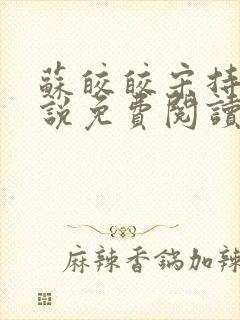 蘇皎皎宋持
說免費閱讀
麻辣香鍋加辣